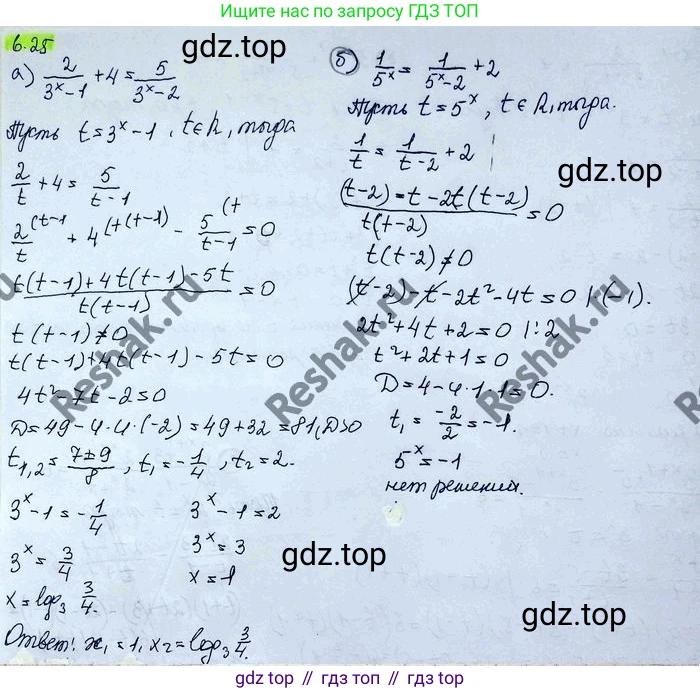 Больше решебников на сайте ГДЗ ТОП
6.25
gdz.top
а) 2/(3^x-1) + 4 = 5/(3^x-2)
Пусть t = 3^x - 1, t∈R, тогда
2/t + 4 = 5/(t-1)
2/t^(t-1 + 4^(t(t-1) - 5/(t-1)^(t = 0
(t(t-1)+4t(t-1)-5t)/(t(t-1)) = 0
t(t-1)≠0
t(t-1)+4t(t-1)-5t=0
4t²-7t-2=0
D=49-4·4·(-2)=49+32=81, D>0
t₁,₂=(7±9)/8, t₁=-1/4, t₂=2.
3^x-1=-1/4 3^x-1=2
3^x=3/4 3^x=3
x=log₃ 3/4. x=1
Ответ: x₁=1, x₂=log₃ 3/4.
б) 1/5^x = 1/(5^x-2) + 2
Пусть t=5^x, t∈R, тогда.
1/t = 1/(t-2) + 2
gdz.top
((t-2)=t-2t(t-2))/(t(t-2)) = 0
t(t-2)≠0
(t-2)-t-2t²-4t=0 |·(-1).
2t²+4t+2=0 |:2
t²+2t+1=0
D=4-4·1·1=0.
t₁=-2/2=-1.
5^x=-1
нет решений.
gdz.top
Reshak.ru
Reshak.ru
Reshak.ru
gdz.top // gdz.top // gdz.top